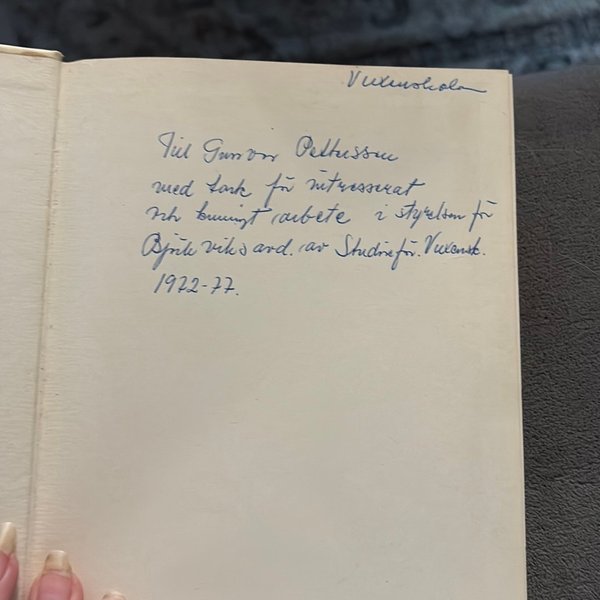 Vuxenskolan
Till Gunvor Pettersson
med tack för intresserat
och kunnigt arbete i styrelsen för
Björkviks avd. av Studieför. Vuxensk.
1972-77.